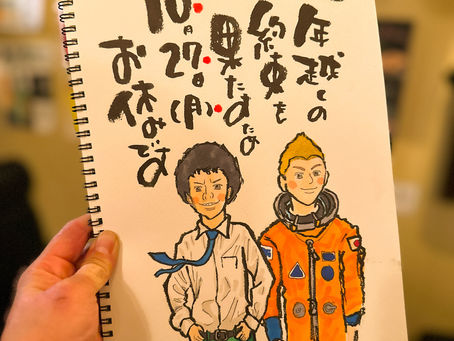 年越しの
約束を
果たすため
10月27日(月)
お休みです